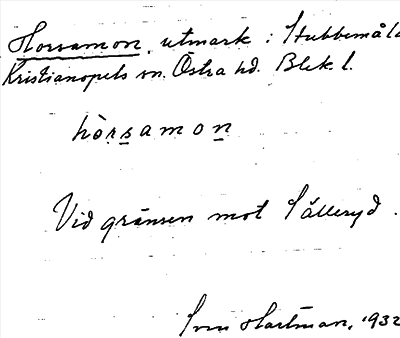 Horsamon, utmark i Stubbemåla
Kristianopels sn. Östra hd. Blek. l.
hòrsamon
Vid gränsen mot Sälleryd.
Sven Hartman, 1932